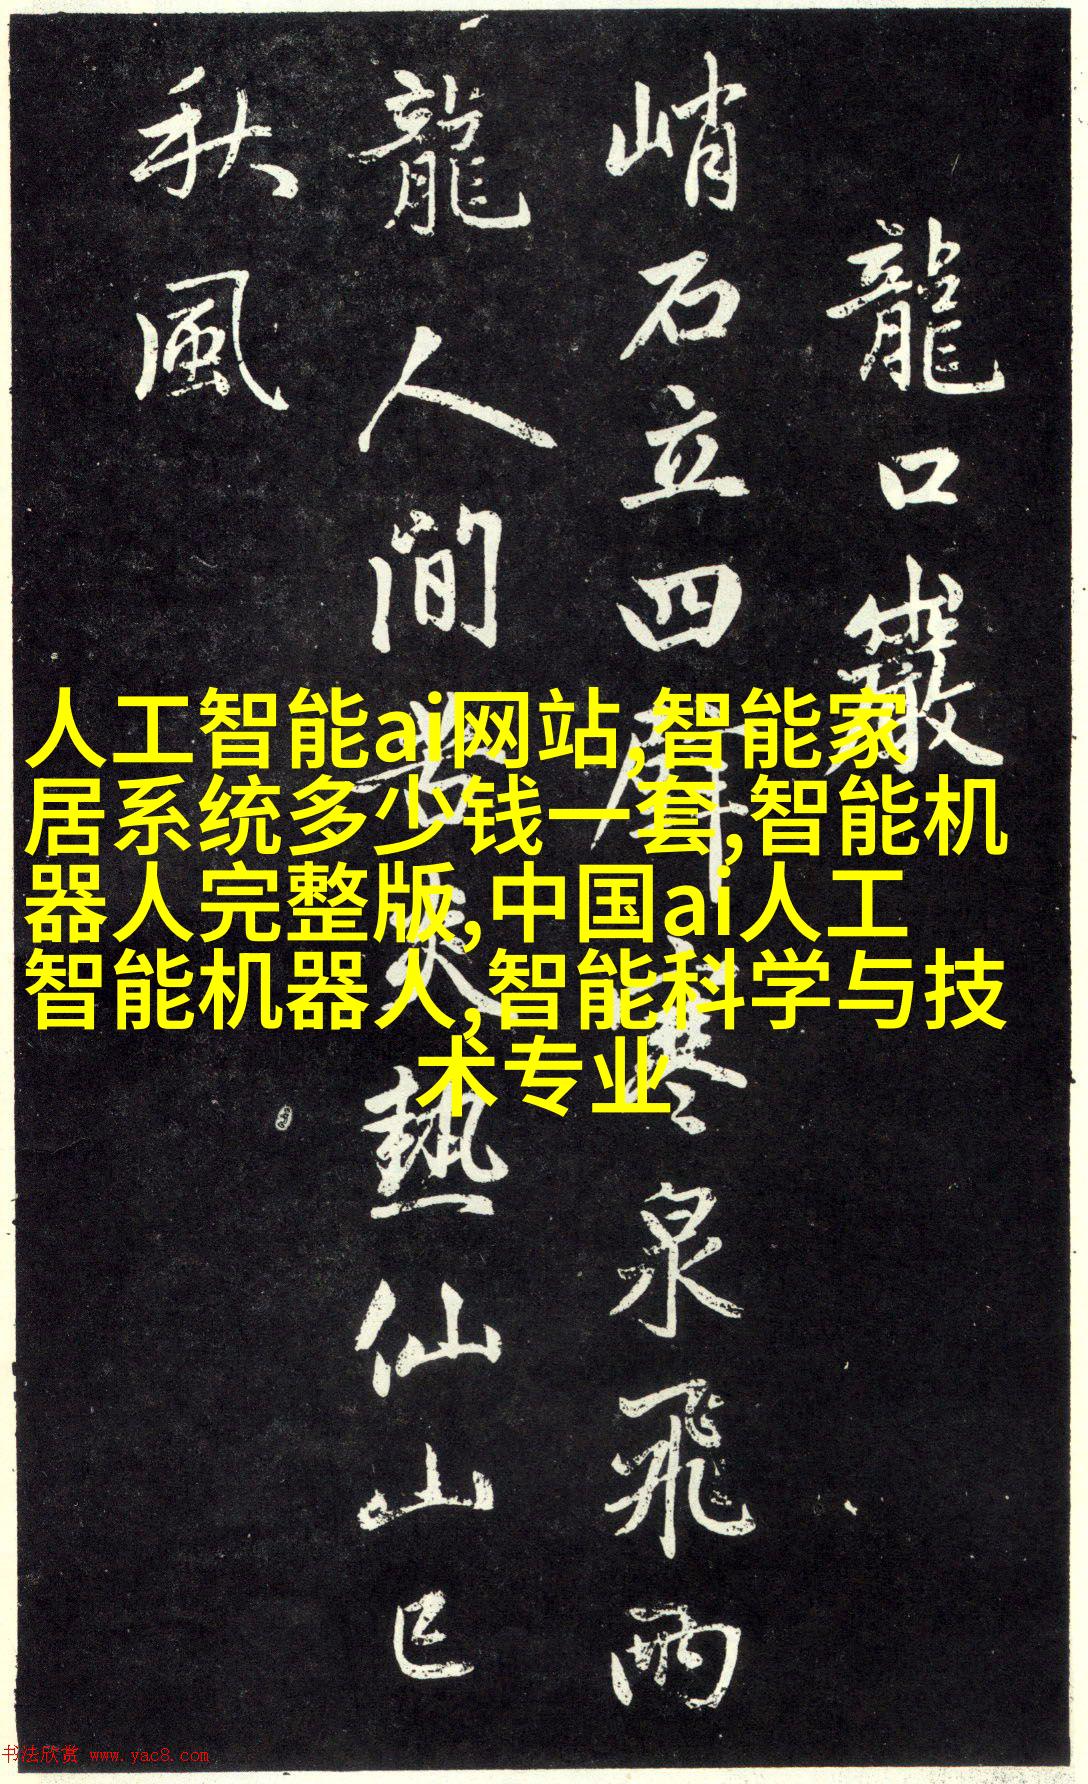 龍口巖
峭石立四壁寒泉飛兩
龍人間苦炎熱仙山已
秋風
人工智能ai网站,智能家
居系统多少钱一套,智能机
器人完整版,中国ai人工
智能机器人,智能科学与技
术专业
书法欣赏 www.yac8.com